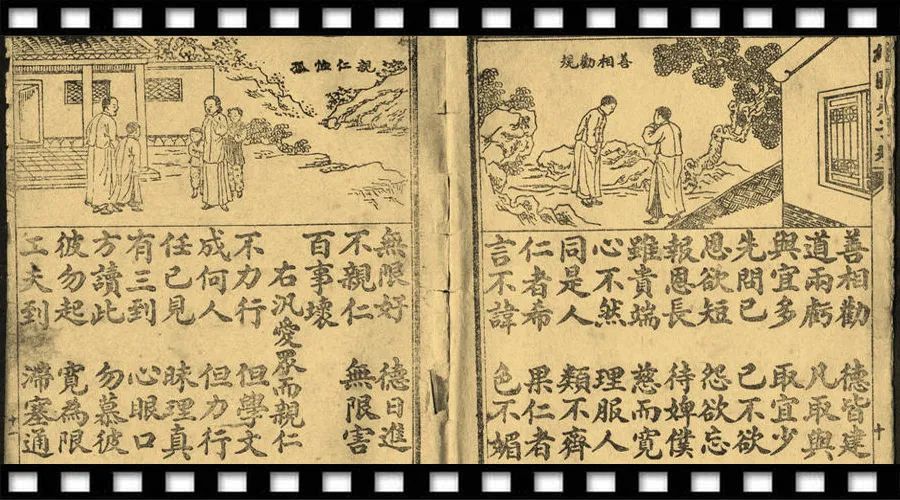 善相勸規
善相勸 德皆建
道兩虧 凡取與
與宜多 取宜少
先問已 已不欲
恩欲短 怨欲忘
報恩長 待婢僕
雖貴端 慈而寬
心不然 理服人
同是人 類不齊
仁者希 果仁者
言不諱 色不媚
親仁恤孤
無限好 德日進
不親仁 無限害
百事壞
右汎愛眾而親仁
不力行 但學文
成何人 但力行
任已見 昧理真
有三到 心眼口
方讀此 勿慕彼
彼勿起 寬為限
工夫到 滯塞通